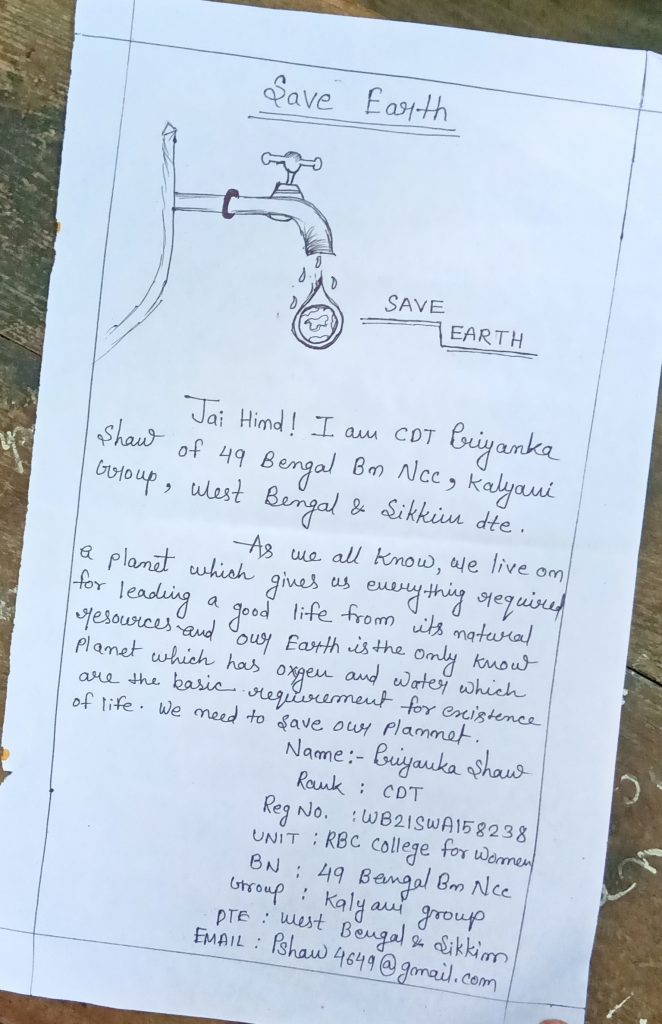 Save Earth
SAVE
EARTH
Jai Hind! I am CDT Priyanka
Shaw of 49 Bengal Bn Ncc, Kalyani
Group, West Bengal & Sikkim dte.
As we all know, we live on
a planet which gives us everything required
for leading a good life from its natural
resources and our Earth is the only know
planet which has oxgen and water which
are the basic requirement for existence
of life. We need to save our plannet.
Name:- Priyanka Shaw
Rank : CDT
Reg No. : WB21SWA158238
UNIT : RBC College for Women
BN : 49 Bengal Bn Ncc
Group : Kalyani group
DTE : West Bengal & Sikkim
EMAIL : Pshaw4649@gmail.com